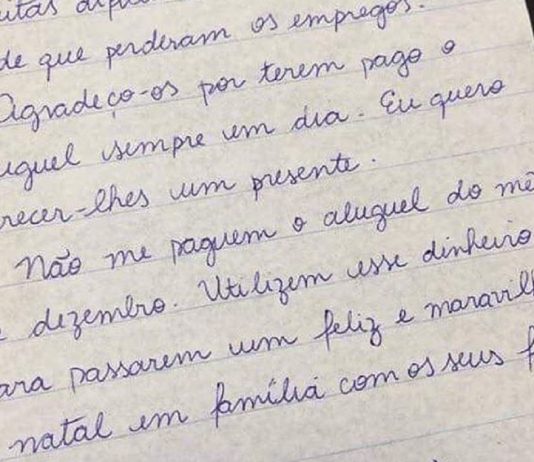 de que perderam os empregos.
Agradeço-os por terem pago o
uguel sempre um dia. Eu quero
recer-lhes um presente.
Não me paguem o aluguel do mê
e dezembro. Utilizem esse dinheiro
ara passarem um feliz e maravil
natal em família com os seus f